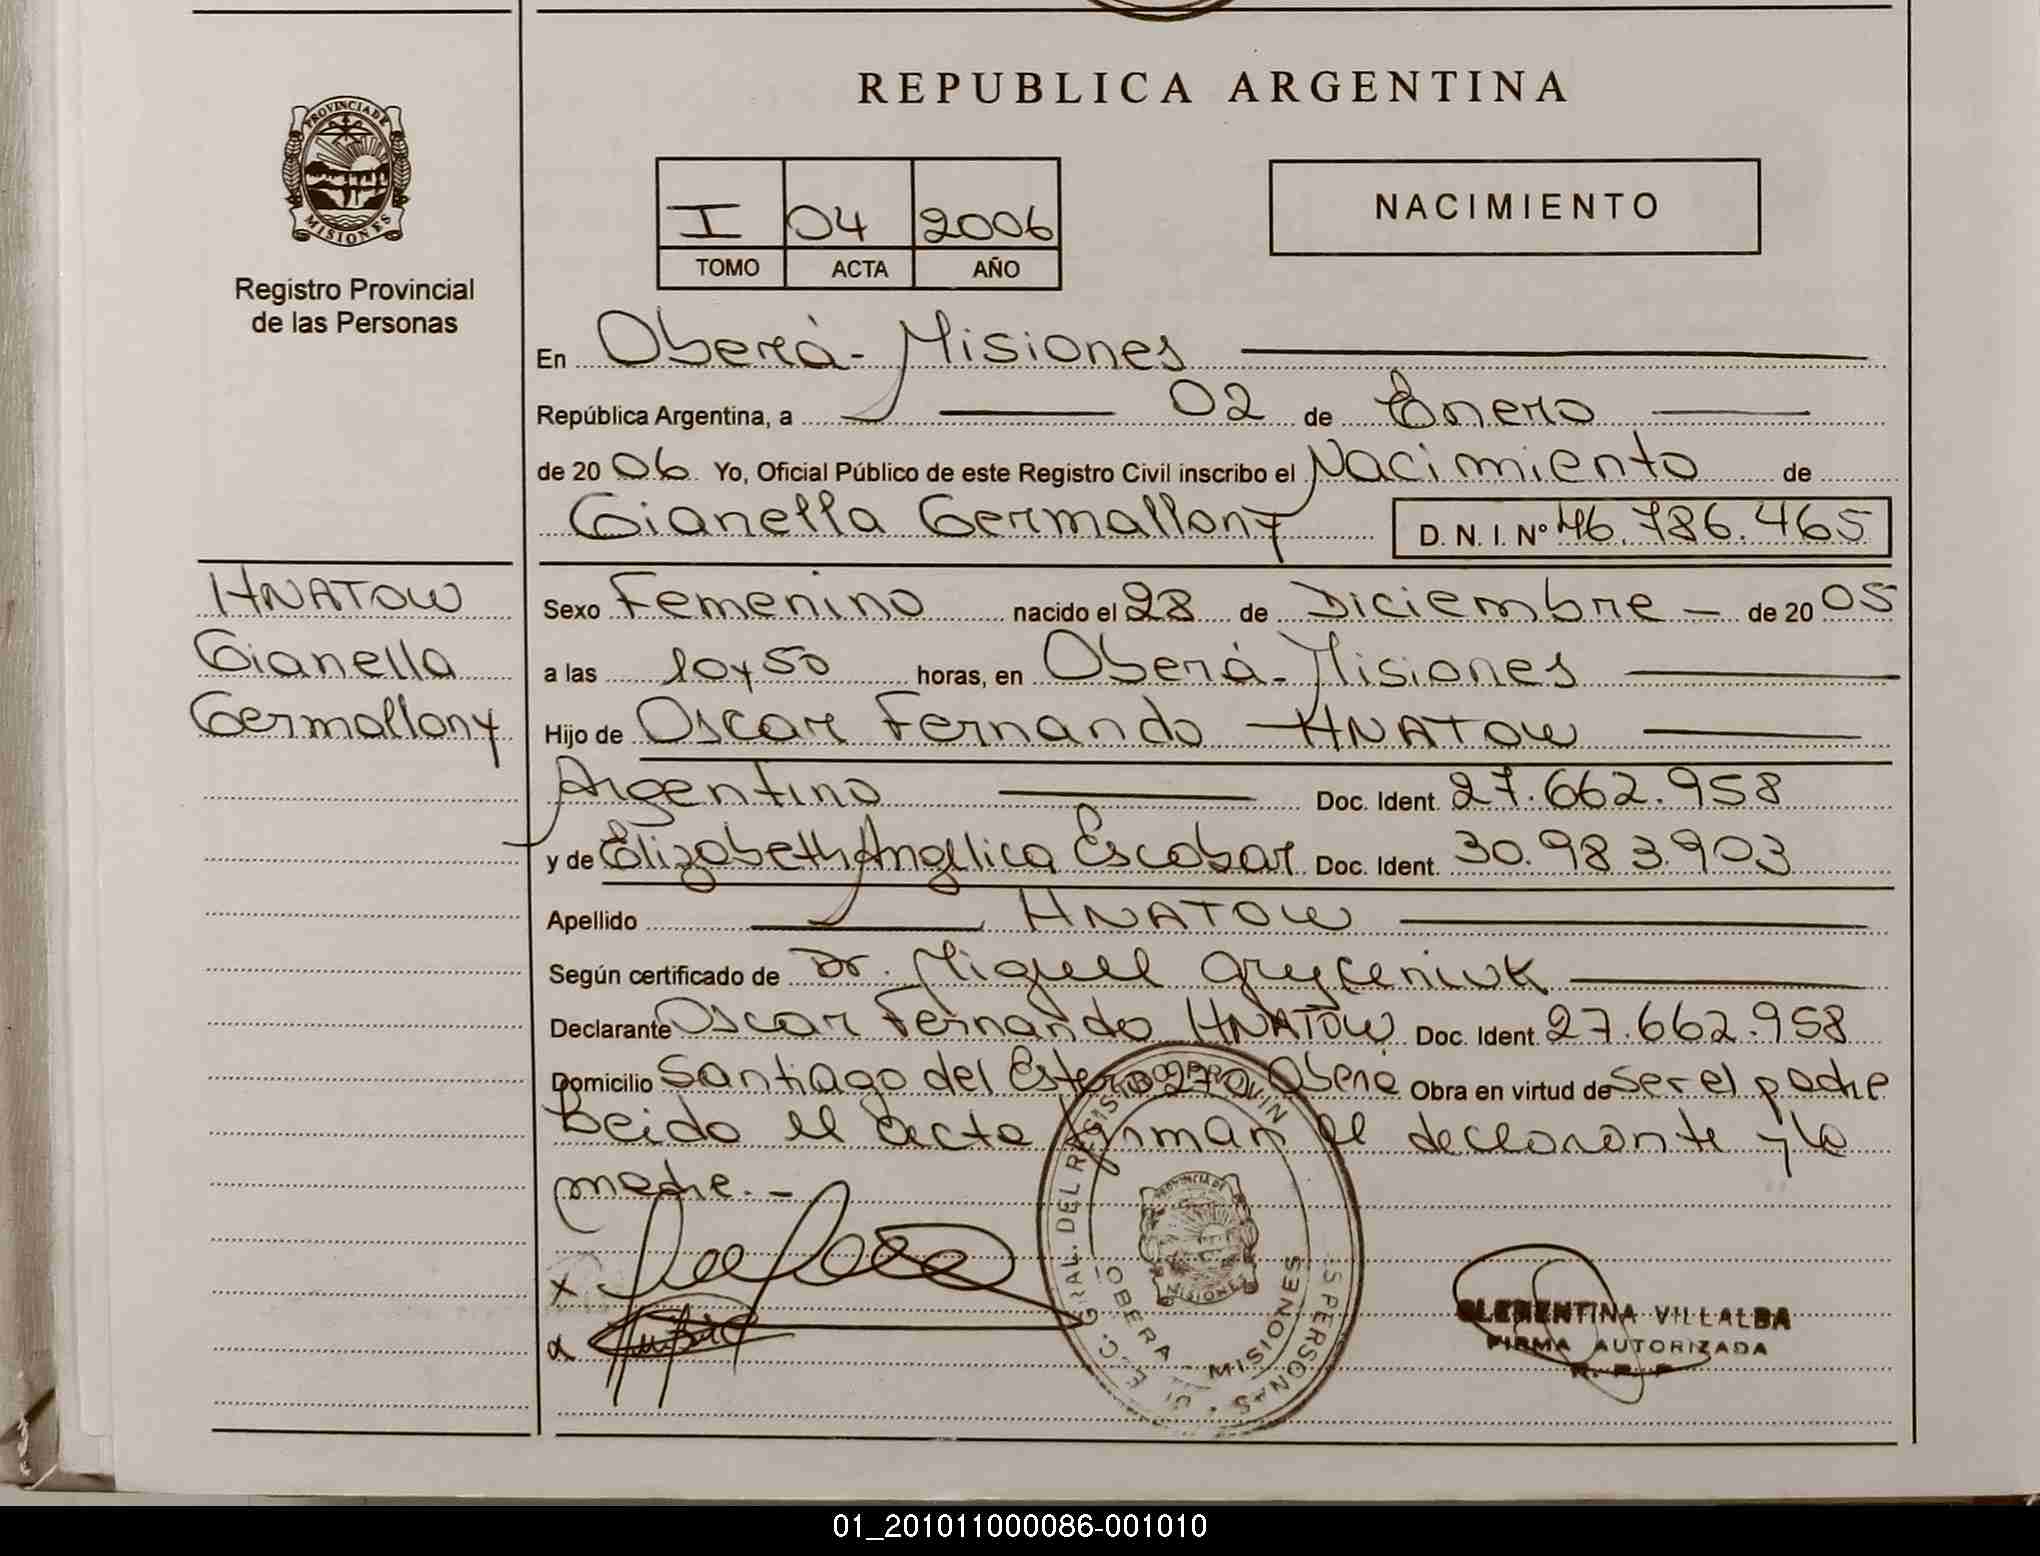 REPUBLICA ARGENTINA
PROVINCIA DE
MISIONES
Registro Provincial
de las Personas
I 04 2006
TOMO ACTA AÑO
NACIMIENTO
En Oberá - Misiones
República Argentina, a 02 de Enero
de 2006 Yo, Oficial Público de este Registro Civil inscribo el Nacimiento de
Gianella Germallony D. N. I. Nº 46.786.465
HNATOW
Gianella
Germallony
Sexo Femenino nacido el 28 de Diciembre - de 2005
a las 10 y 50 horas, en Oberá - Misiones
Hijo de Oscar Fernando HNATOW
Argentino Doc. Ident. 27.662.958
y de Elizabeth Angélica Escobar Doc. Ident. 30.983.903
Apellido HNATOW
Según certificado de Dr. Miguel Gryceniuk
Declarante Oscar Fernando HNATOW Doc. Ident. 27.662.958
Domicilio Santiago del Estero 270 Oberá Obra en virtud de ser el padre
Leido el acta firman el declarante y la
madre. -
GRAL. DEL REGISTRO PROVIN
S PERSONAS
OBERA - MISIONES
PROVINCIA DE
MISIONES
CLEMENTINA VILLALBA
FIRMA AUTORIZADA
R. P. P
01_201011000086-001010